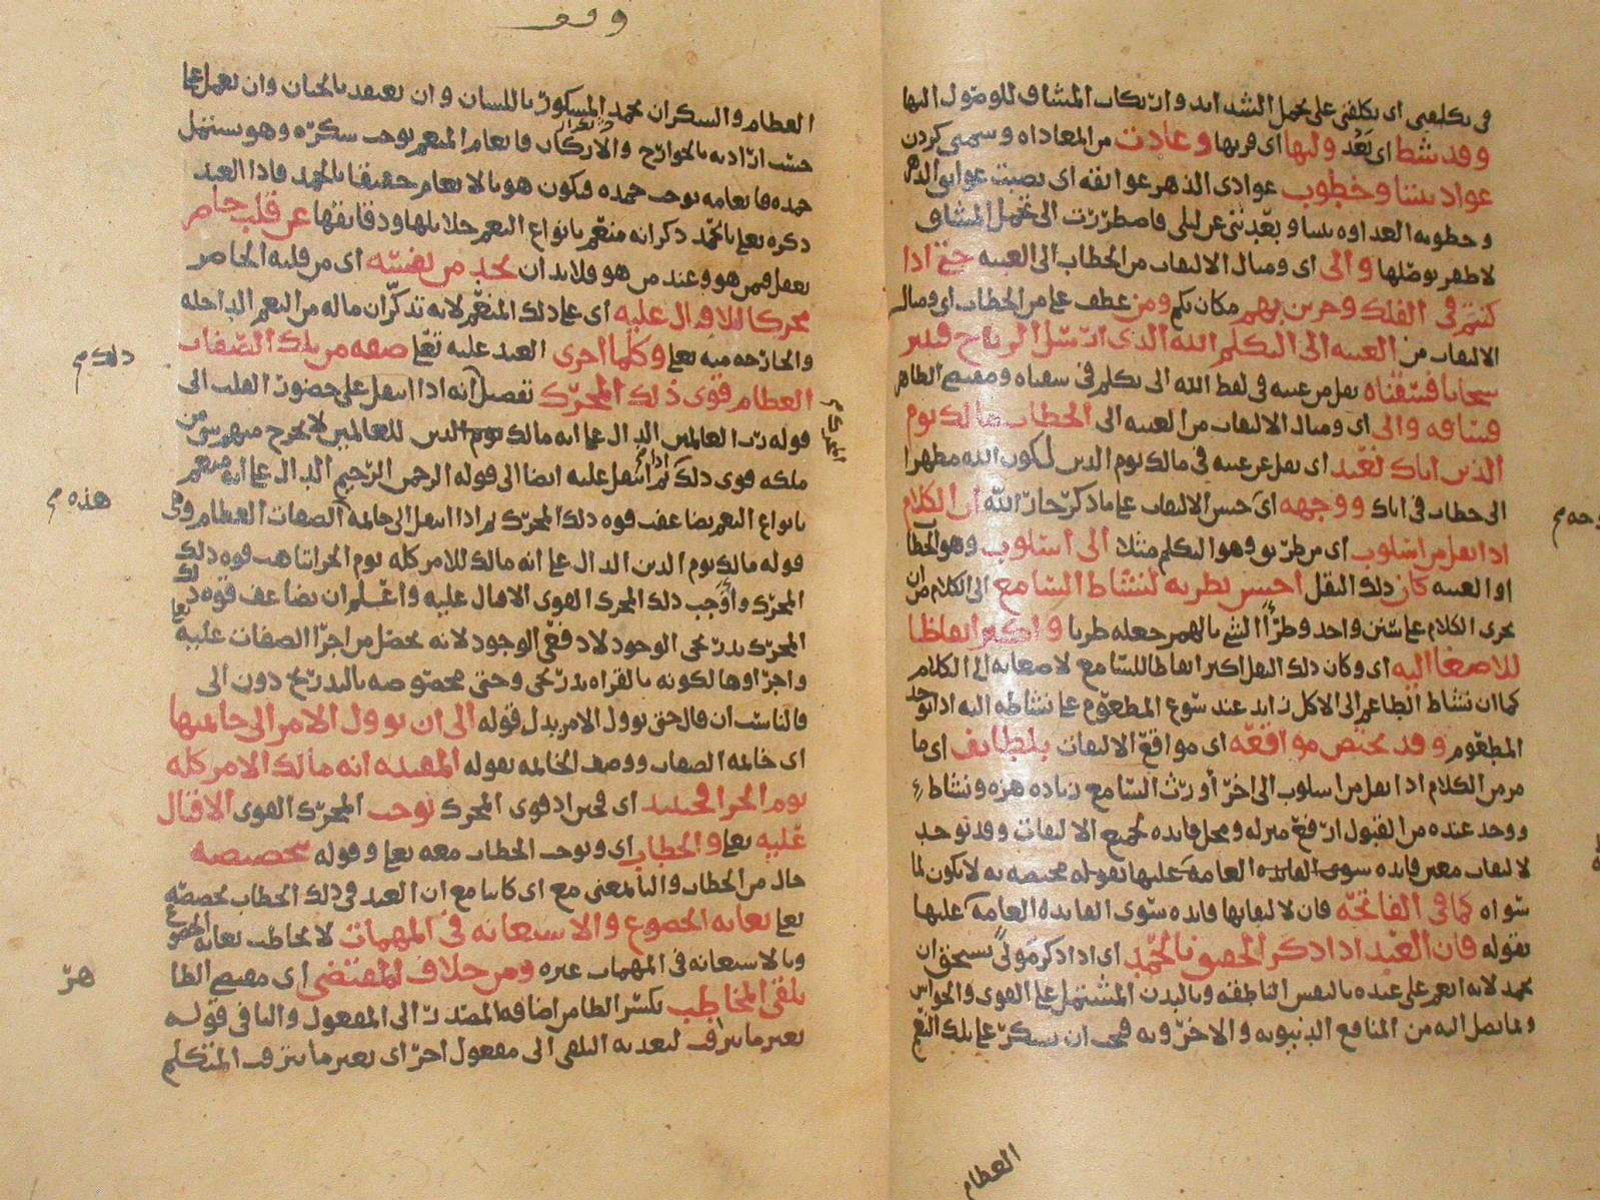 فى تكليفى اى تكلفنى على تحمل الشدايد وارتكاب المشاق للوصول اليها
وقد شط اى بَعُد وليها اى قربها وعادت من المعاداه
عواد بيننا وخطوب عوادى الدهر عوائقه اى
وخطوبه العداوه بيننا وبعّدتنى عن ليلى فاضطررت الى تحمل المشاق
والى اى ومثال الالتفات من الخطاب الى الغيبه حتى اذا
كنتم فى الفلك وجرين بهم مكان بكم ومن عطف على من الخطاب اى ومثال
الالتفات من الغيبه الى التكلم الله الذى ارسل الرياح فتثير
سحابا فسقناه نقل من غيبه فى لفظ الله الى تكلم فى سقناه ومقتضى الظاهر
فساقه والى اى ومثال الالتفات من الغيبه الى الخطاب مالك يوم
الدين اياك نعبد اى نقل عن غيبه فى مالك يوم الدين لكون الله مظهرا
الى خطاب فى اياك ووجهه اى حسن الالتفات على ما ذكر جار الله ان الكلام
اذا نقل من اسلوب اى من طريق وهو التكلم مثلا الى اسلوب وهو الخطاب
او الغيبه كان ذلك النقل احسن تطريه لنشاط السامع الى الكلام من ان
يجرى الكلام على سنن واحد وطرّأ الشئ بالهمز جعله طريا واكثر ايقاظا
للاصغا اليه اى وكان ذلك النقل اكثر ايقاظا للسامع لاصغايه الى الكلام
كما ان نشاط الطاعم الى الاكل زايد عند تنوع المطعوم على نشاطه اليه اذا توحد
المطعوم وقد تختص مواقعه اى مواقع الالتفات بلطايف اى ما
مر من الكلام اذا نقل من اسلوب الى اخر أورث السامع زياده هزه ونشاط
ووجد عنده من القبول ارفع منزله ومحل فايده لجميع الالتفات وقد توجد
لالتفات معين فايده سوى الفايده العامه عليها تختصه به لا يكون لما
سواه كما فى الفاتحه فان لالتفاتها فايده سوى الفايده العامه عليها
بقوله فان العبد اذا ذكر الحقيق بالحمد اى اذا ذكر مولى يستحق ان
يحمد لانه انعم على عبده بالنفس الناطقه وبالبدن المشتمل على القوى والحواس
وبما يصل اليه من المنافع الدنيويه والاخرويه فيجب ان يشكر على تلك النعم
العظام
وجه
العظام والشكر ان يحمد المشكور باللسان وان يعتقد بالجنان وان يعمل
حسب ارادته بالجوارح والاركان فانعام المنعم يوجب شكره وهو يشتمل
حمده فانعامه يوجب حمده فيكون هو بالانعام حقيقا بالحمد فاذا العبد
ذكره تعالى بالحمد ذكر انه منعم بانواع النعم جلايلها ودقايقها عن قلب حاضر
يعقل فمن هو وعند من هو فلا بد ان يجد من نفسه اى من قلبه الحاضر
محركا للاقبال عليه اى على ذلك المنعم لانه تذكر ان ماله من النعم الداخله
والخارجه منه تعالى وكلما اجرى العبد عليه تعالى صفه من تلك الصفات
العظام قوى ذلك المحرك تفصيل انه اذا انتقل على حضور القلب الى
قوله رب العالمين الدال على انه مالك للعالمين لا يخرج منهم شئ من
ملكه قوى ذلك ثم اذا انتقل عليه ايضا الى قوله الرحمن الرحيم الدال على انه منعم
بانواع النعم يضاعف قوه ذلك المحرك ثم اذا انتقل الى خاتمه الصفات العظام وهى
قوله مالك يوم الدين الدال على انه مالك للامر كله يوم الجزا تناهت قوه ذلك
المحرك واوجب ذلك المحرك القوى الاقبال عليه واعلم ان تضاعف قوه ذلك
المحرك تدريجى الوجود لا دفعى الوجود لانه يحصل من اجرا الصفات عليه
واجراوها لكونه بالقراه تدريجى وحتى مخصوصه بالتدريج دون الى
فالمناسب ان قال حتى يوول الامر بدل قوله الى ان يوول الامر الى خاتمتها
اى خاتمه الصفات ووصف الخاتمه بقوله المفيده انه مالك الامر كله
يوم الجزا فحينئذ اى فحين اذ قوى المحرك يوجب المحرك القوى الاقبال
عليه تعالى والخطاب اى ويوجب الخطاب معه تعالى وقوله بتخصيصه
حال من الخطاب والبا بمعنى مع اى كاينا مع ان العبد فى ذلك الخطاب يخصصه
تعالى بغايه الخضوع والاستعانه فى المهمات لا يخاطب بغايه الخضوع
وبالاستعانه فى المهمات غيره ومن خلاف المقتضى اى مقتضى الظا
تلقى المخاطب بكسر الطا من اضافه المصدر الى المفعول والبا فى قوله
بغير ما يترقب لتعديه التلقى الى مفعول اخر اى بغير ما يترقب المتكلم
ذلك
هذه